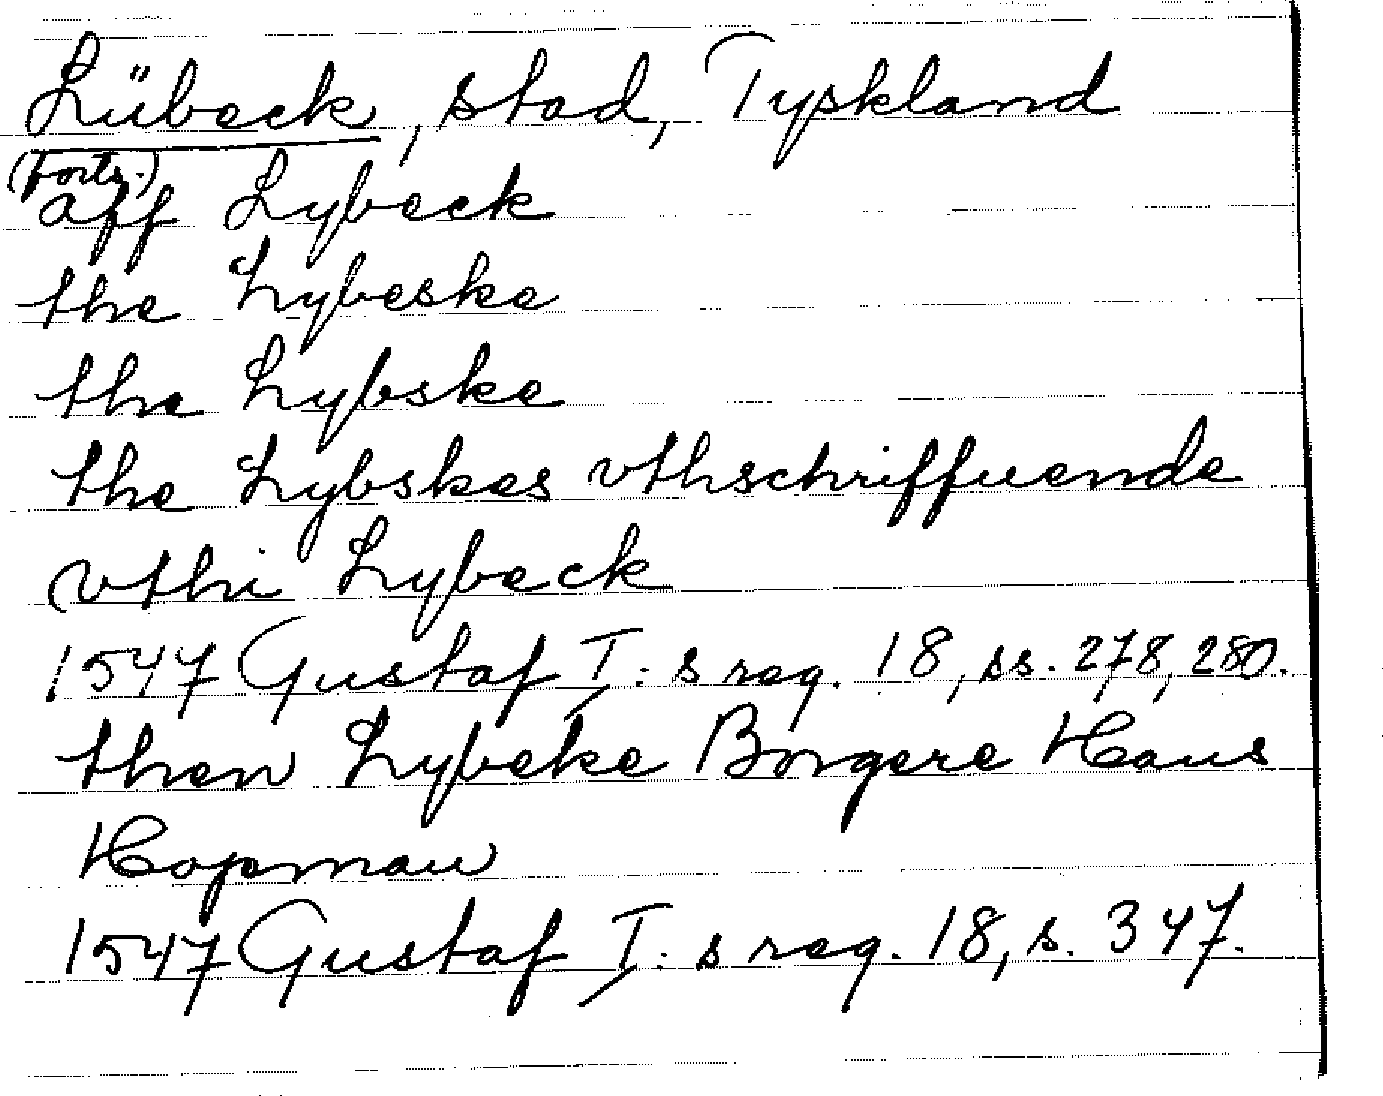 Lübeck, stad, Tyskland
(Forts.)
aff Lybeck
the Lybeske
the Lybske
the Lybskes vthschriffuende
vthi Lybeck
1547 Gustaf I:s reg. 18, ss. 278, 280.
then Lybeke Borgere Hans
Hopman
1547 Gustaf I:s reg. 18, s. 347.